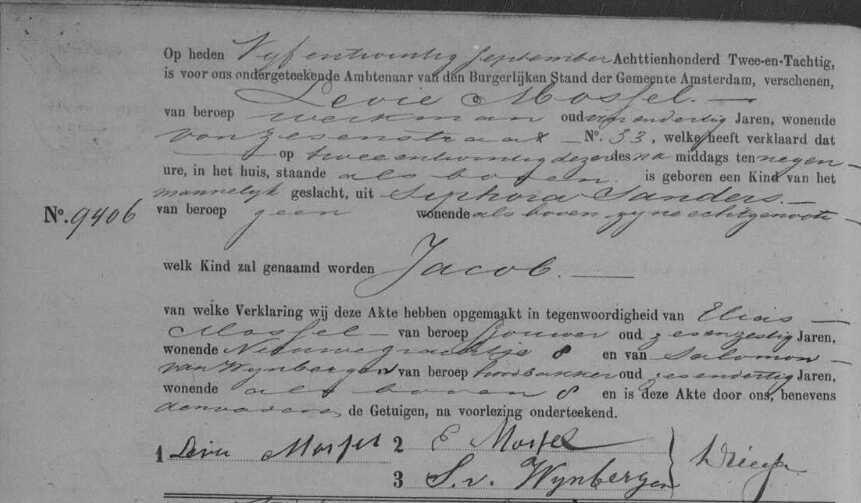 Op heden Vyfentwintig September Achttienhonderd Twee-en-Tachtig,
is voor ons ondergeteekende Ambtenaar van den Burgerlijken Stand der Gemeente Amsterdam, verschenen,
Levie Mossel.
van beroep werkman oud endertig Jaren, wonende
von zesenstraat No. 33, welke heeft verklaard dat
op tweeentwintig dezer des na middags ten negen
ure, in het huis, staande als boven. is geboren een Kind van het
mannelyk geslacht, uit Siphora Sanders
No. 9406
van beroep geen wonende als boven zyne echtgenoote
welk Kind zal genaamd worden Jacob.
van welke Verklaring wij deze Akte hebben opgemaakt in tegenwoordigheid van Elias
Mossel van beroep oud zesenzestig Jaren,
wonende Nieuwegrachtje 8 en van Salomon
van Wynbergen van beroep oud zesendertig Jaren,
wonende als boven 8 en is deze Akte door ons, benevens
den vader, de Getuigen, na voorlezing onderteekend.
1 Levie Mossel 2 E Mossel
3 S. v. Wynbergen